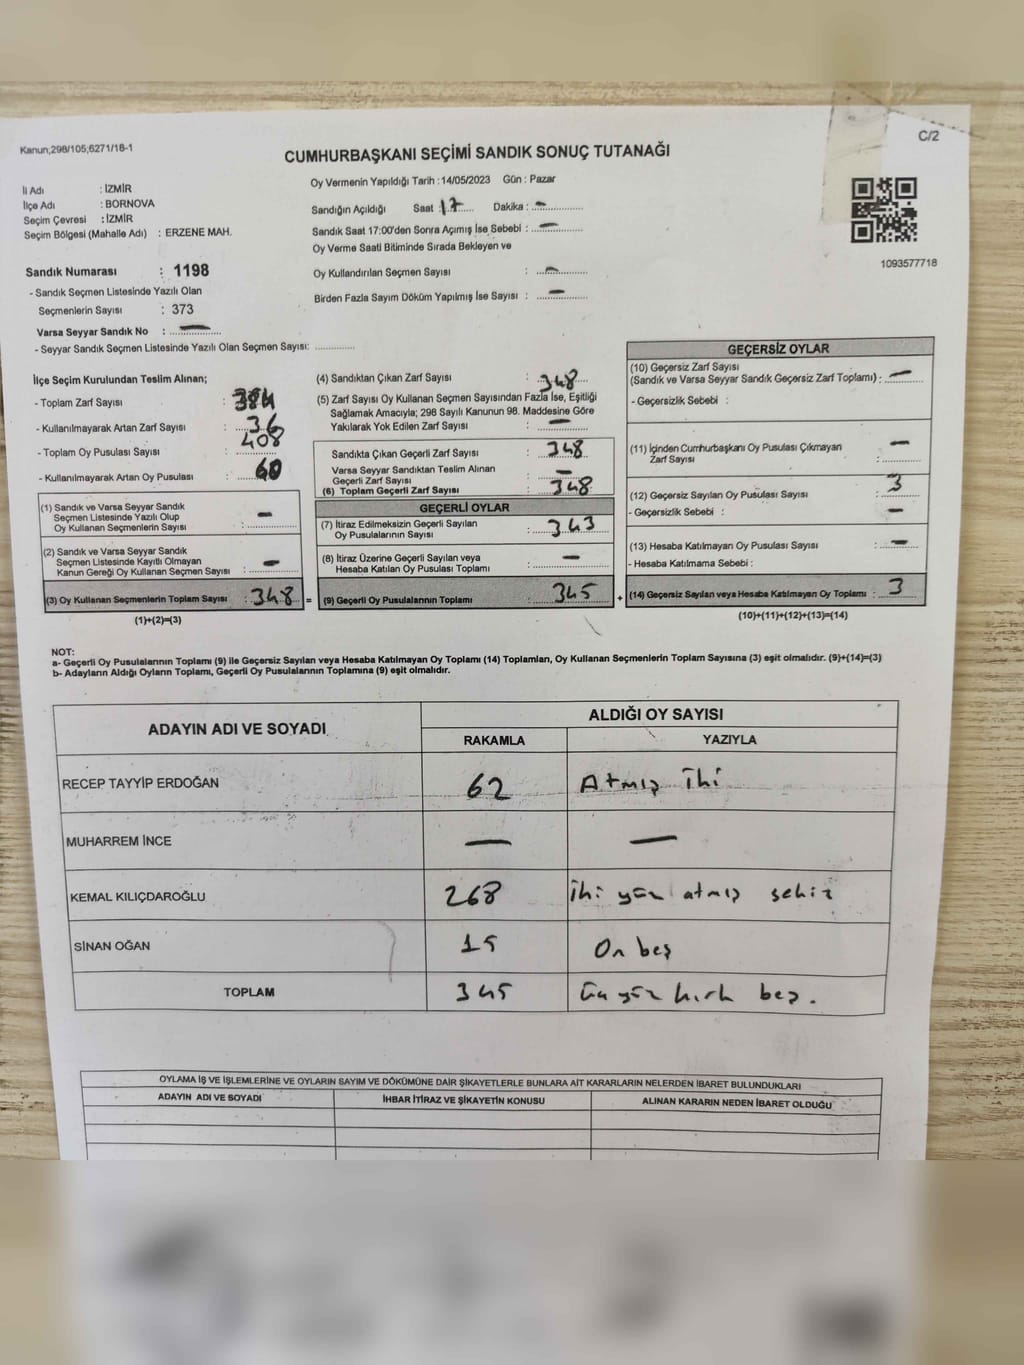 Kanun;298/105;6271/18-1
C/2
CUMHURBAŞKANI SEÇİMİ SANDIK SONUÇ TUTANAĞI
İl Adı : İZMİR
İlçe Adı : BORNOVA
Seçim Çevresi : İZMİR
Seçim Bölgesi (Mahalle Adı) : ERZENE MAH.
Sandık Numarası : 1198
- Sandık Seçmen Listesinde Yazılı Olan
Seçmenlerin Sayısı : 373
Varsa Seyyar Sandık No : —
- Seyyar Sandık Seçmen Listesinde Yazılı Olan Seçmen Sayısı:
Oy Vermenin Yapıldığı Tarih : 14/05/2023 Gün : Pazar
Sandığın Açıldığı Saat : 17 Dakika : —
Sandık Saat 17:00'den Sonra Açımış İse Sebebi : —
Oy Verme Saati Bitiminde Sırada Bekleyen ve
Oy Kullandırılan Seçmen Sayısı : —
Birden Fazla Sayım Döküm Yapılmış İse Sayısı : —
1093577718
İlçe Seçim Kurulundan Teslim Alınan;
- Toplam Zarf Sayısı : 384
- Kullanılmayarak Artan Zarf Sayısı : 36
- Toplam Oy Pusulası Sayısı : 408
- Kullanılmayarak Artan Oy Pusulası : 60
(1) Sandık ve Varsa Seyyar Sandık
Seçmen Listesinde Yazılı Olup
Oy Kullanan Seçmenlerin Sayısı : —
(2) Sandık ve Varsa Seyyar Sandık
Seçmen Listesinde Kayıtlı Olmayan
Kanun Gereği Oy Kullanan Seçmen Sayısı : —
(3) Oy Kullanan Seçmenlerin Toplam Sayısı : 348 =
(1)+(2)=(3)
(4) Sandıktan Çıkan Zarf Sayısı : 348
(5) Zarf Sayısı Oy Kullanan Seçmen Sayısından Fazla İse, Eşitliği
Sağlamak Amacıyla; 298 Sayılı Kanunun 98. Maddesine Göre
Yakılarak Yok Edilen Zarf Sayısı : —
Sandıkta Çıkan Geçerli Zarf Sayısı : 348
Varsa Seyyar Sandıktan Teslim Alınan
Geçerli Zarf Sayısı : —
(6) Toplam Geçerli Zarf Sayısı : 348
GEÇERLİ OYLAR
(7) İtiraz Edilmeksizin Geçerli Sayılan
Oy Pusulalarının Sayısı : 343
(8) İtiraz Üzerine Geçerli Sayılan veya
Hesaba Katılan Oy Pusulası Toplamı : —
(9) Geçerli Oy Pusulalarının Toplamı : 345 +
GEÇERSİZ OYLAR
(10) Geçersiz Zarf Sayısı
(Sandık ve Varsa Seyyar Sandık Geçersiz Zarf Toplamı) : —
- Geçersizlik Sebebi :
(11) İçinden Cumhurbaşkanı Oy Pusulası Çıkmayan
Zarf Sayısı : —
(12) Geçersiz Sayılan Oy Pusulası Sayısı : 3
- Geçersizlik Sebebi : —
(13) Hesaba Katılmayan Oy Pusulası Sayısı : —
- Hesaba Katılmama Sebebi :
(14) Geçersiz Sayılan veya Hesaba Katılmayan Oy Toplamı : 3
(10)+(11)+(12)+(13)=(14)
NOT:
a- Geçerli Oy Pusulalarının Toplamı (9) ile Geçersiz Sayılan veya Hesaba Katılmayan Oy Toplamı (14) Toplamları, Oy Kullanan Seçmenlerin Toplam Sayısına (3) eşit olmalıdır. (9)+(14)=(3)
b- Adayların Aldığı Oyların Toplamı, Geçerli Oy Pusulalarının Toplamına (9) eşit olmalıdır.
ADAYIN ADI VE SOYADI ALDIĞI OY SAYISI
RAKAMLA YAZIYLA
RECEP TAYYİP ERDOĞAN 62 Atmış iki
MUHARREM İNCE — —
KEMAL KILIÇDAROĞLU 268 iki yüz atmış sekiz
SİNAN OĞAN 15 On beş
TOPLAM 345 üç yüz kırk beş.
OYLAMA İŞ VE İŞLEMLERİNE VE OYLARIN SAYIM VE DÖKÜMÜNE DAİR ŞİKAYETLERLE BUNLARA AİT KARARLARIN NELERDEN İBARET BULUNDUKLARI
ADAYIN ADI VE SOYADI İHBAR İTİRAZ VE ŞİKAYETİN KONUSU ALINAN KARARIN NEDEN İBARET OLDUĞU